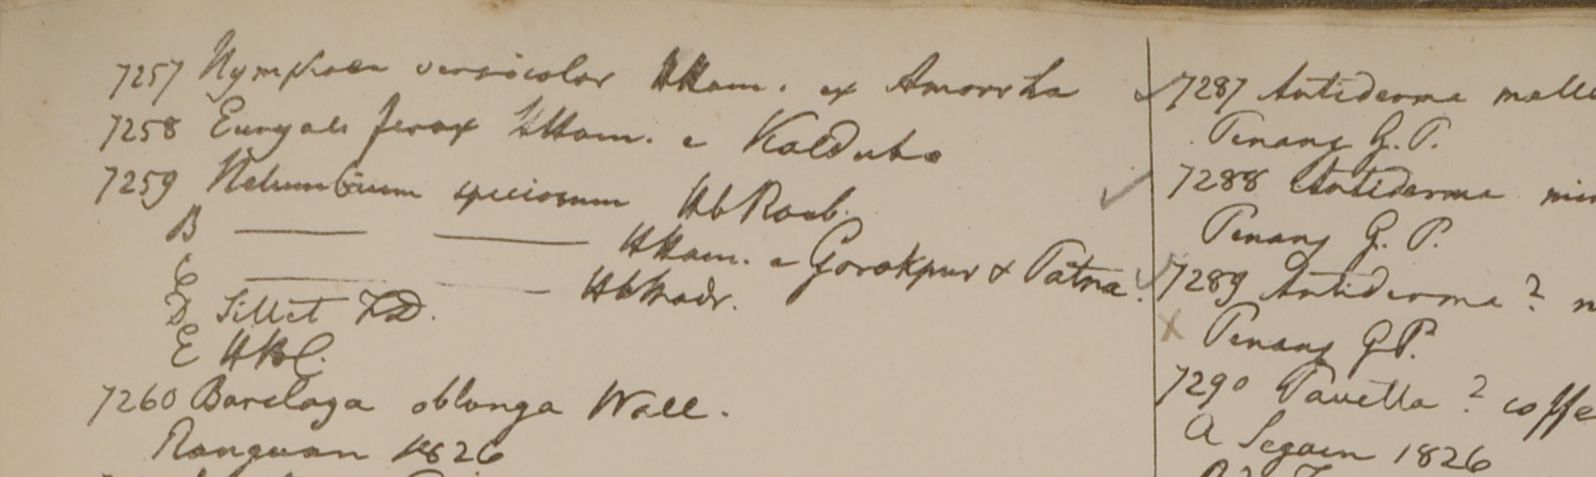 7257 Nymphaea versicolor HHam. ex Amorrha
7258 Euryale ferox HHam. e Kalduba
7259 Nelumbium speciosum Hb Roxb.
B —— —— HHam. e Gorakpur & Patna.
C —— —— Hb Madr.
D Sillet FD.
E HBC.
7260 Barclaya oblonga Wall.
Ranguan 1826
7287 Antiderma molle
Penang G. P.
7288 Antiderma
Penang G. P.
7289 Antiderma ?
Penang GP.
7290 Pavetta ? coffe
a Segain 1826